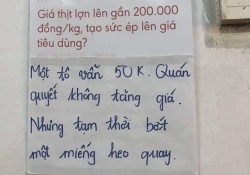 Giá thịt lợn lên gần 200.000
đồng/kg, tạo sức ép lên giá
tiêu dùng?
Một tô vẫn 50K. Quán
quyết không tăng giá.
Nhưng tạm thời bớt
một miếng heo quay.